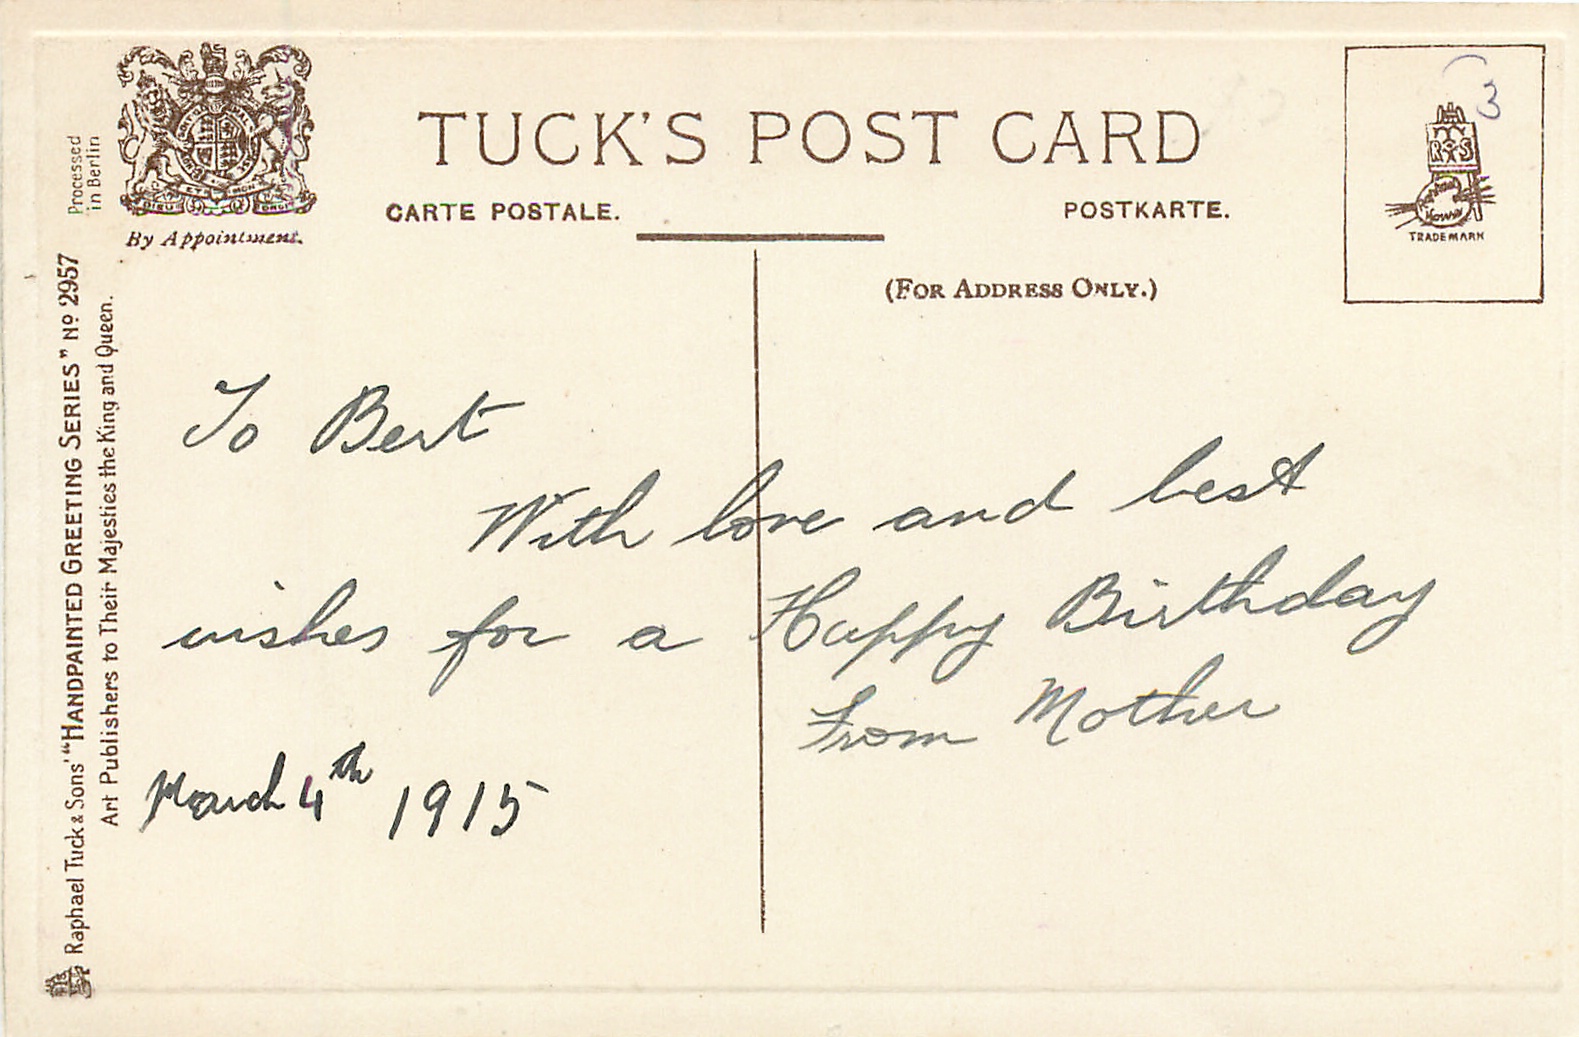 Processed
in Berlin
By Appointment.
TUCK'S POST CARD
CARTE POSTALE.
POSTKARTE.
(FOR ADDRESS ONLY.)
3
RTS
Raphael
House
TRADE MARK
Raphael Tuck & Sons' "HANDPAINTED GREETING SERIES" Nº 2957
Art Publishers to Their Majesties the King and Queen.
To Bert
With love and best
wishes for a Happy Birthday
From Mother
March 4th 1915